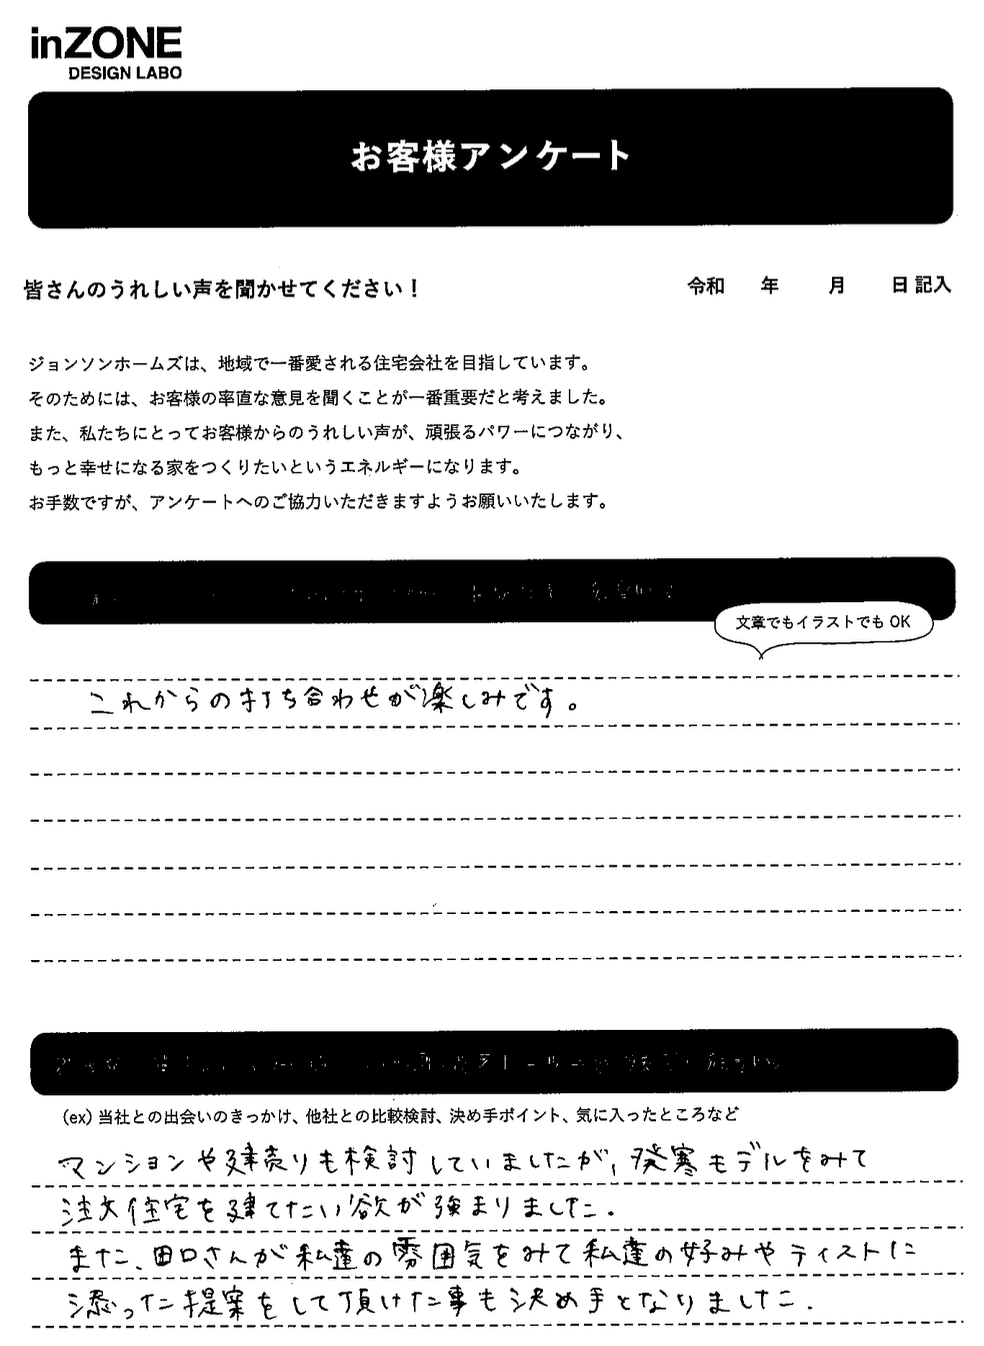 inZONE
DESIGN LABO
お客様アンケート
皆さんのうれしい声を聞かせてください！
令和 年 月 日 記入
ジョンソンホームズは、地域で一番愛される住宅会社を目指しています。
そのためには、お客様の率直な意見を聞くことが一番重要だと考えました。
また、私たちにとってお客様からのうれしい声が、頑張るパワーにつながり、
もっと幸せになる家をつくりたいというエネルギーになります。
お手数ですが、アンケートへのご協力いただきますようお願いいたします。
文章でもイラストでも OK
これからの打ち合わせが楽しみです。
（ex）当社との出会いのきっかけ、他社との比較検討、決め手ポイント、気に入ったところなど
マンションや建売りも検討していましたが、発寒モデルをみて
注文住宅を建てたい欲が強まりました.
また、田口さんが私達の雰囲気をみて私達の好みやテイストに
添った提案をして頂けた事も決め手となりました.